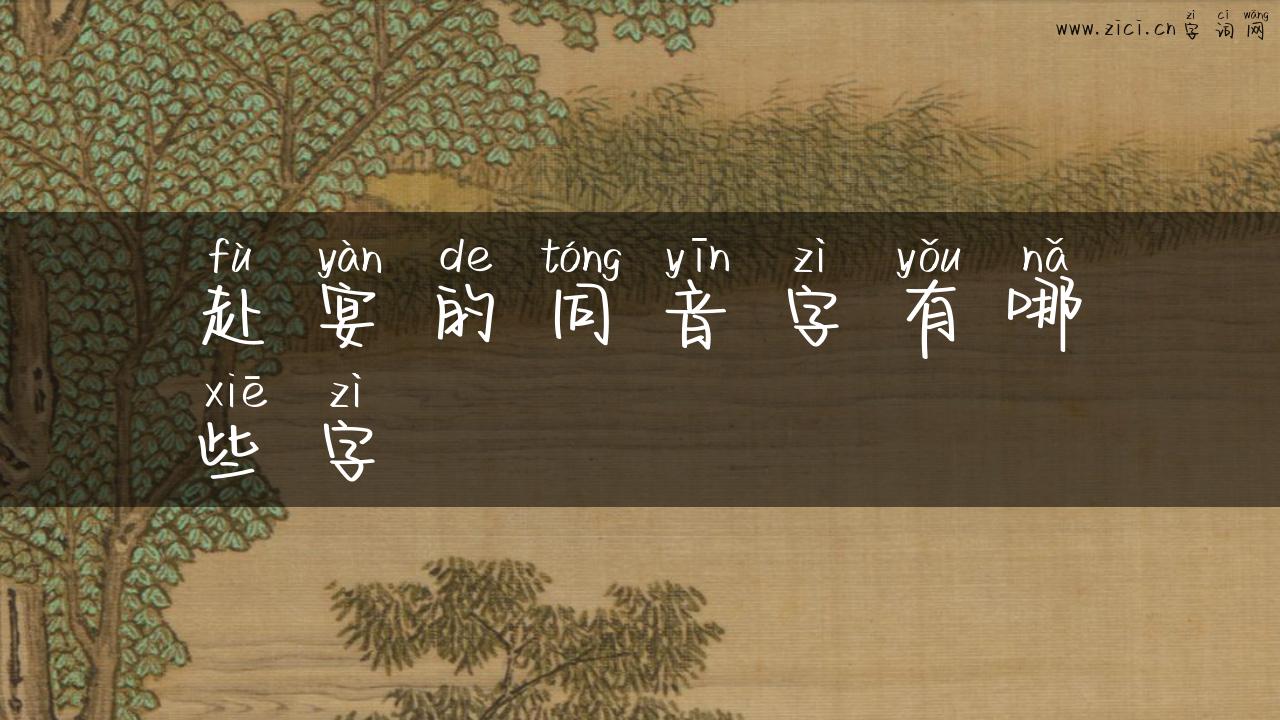 zì cí wǎng
www.zici.cn字词网
fù yàn de tóng yīn zì yǒu nǎ
赴宴的同音字有哪
xiē zì
些字